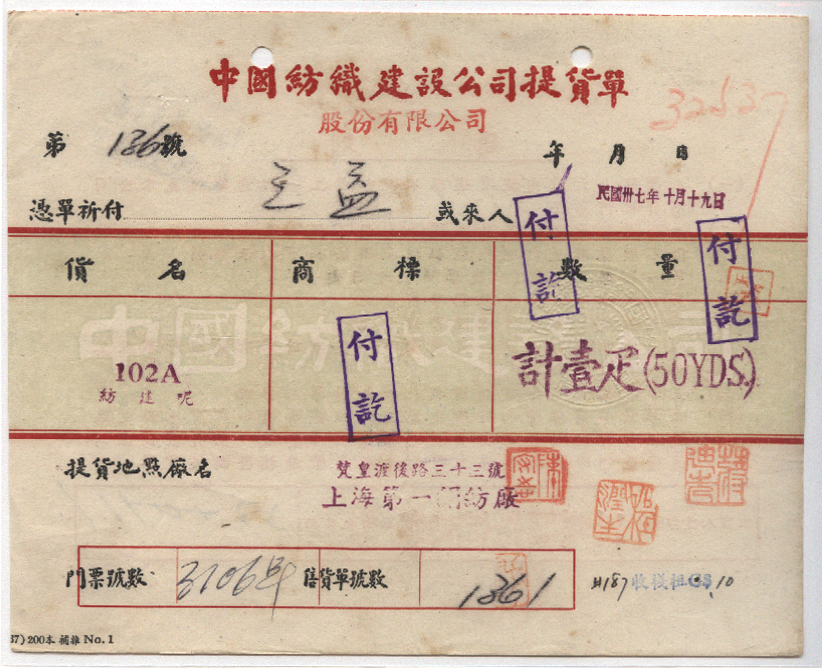 中國紡織建設公司提貨單
股份有限公司
32537
第 136 號
年 月 日
民國卅七年十月十九日
憑單祈付 王益 或來人
付訖
付訖
貨名 商標 數量
中國紡織建設公司
102A
紡建呢
付訖
計壹疋(50YDS.)
提貨地點廠名
梵皇渡後路三十三號
上海第一 紡廠
門票號數 31068 售貨單號數 1361
187 收後 10
37) 200本 補雜 No. 1